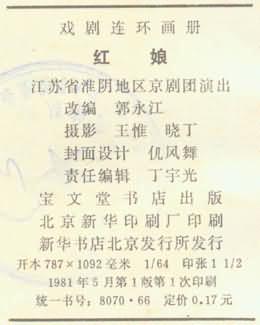 戏剧连环画册
红娘
江苏省淮阴地区京剧团演出
改编 郭永江
摄影 王惟 晓丁
封面设计 仉凤舞
责任编辑 丁宇光
宝文堂书店出版
北京新华印刷厂印刷
新华书店北京发行所发行
开本787×1092毫米 1/64 印张1 1/2
1981年5月第1版第1次印刷
统一书号：8070·66 定价0.17元